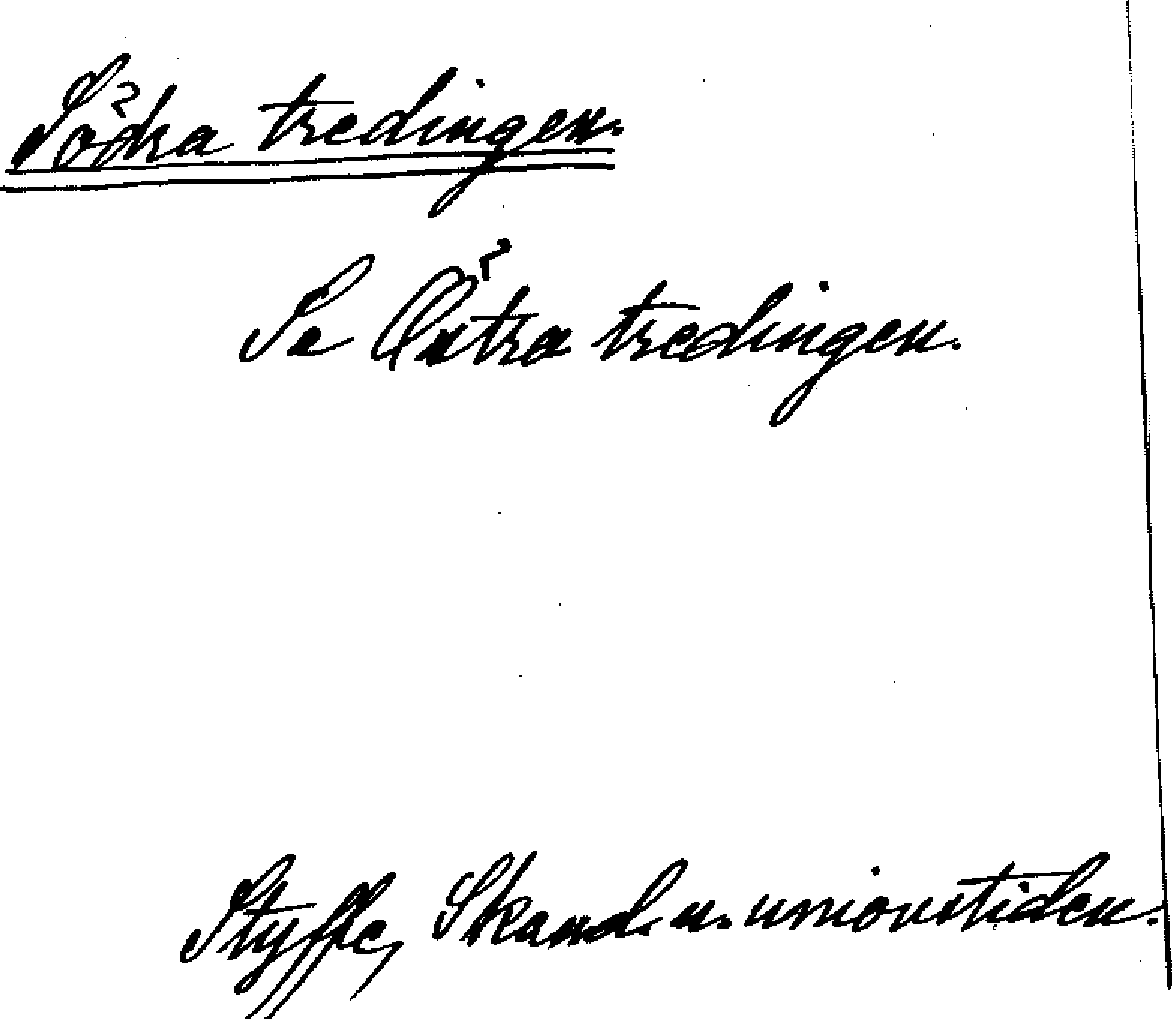 Södra tredingen.
Se Östra tredingen.
Styffe, Skand. u. unionstiden.